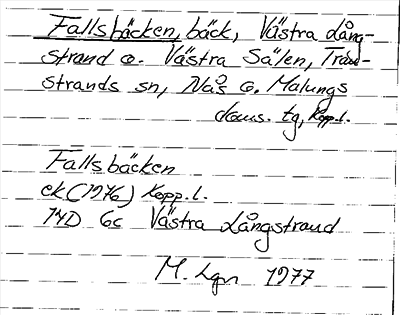 Fallsbäcken, bäck, Västra Lång-
strand o. Västra Sälen, Tran-
strands sn, Nås o. Malungs
doms. tg, Kopp.l.
Fallsbäcken
ek (1976) Kopp.l.
14D 6c Västra Långstrand
M. Lgn 1977